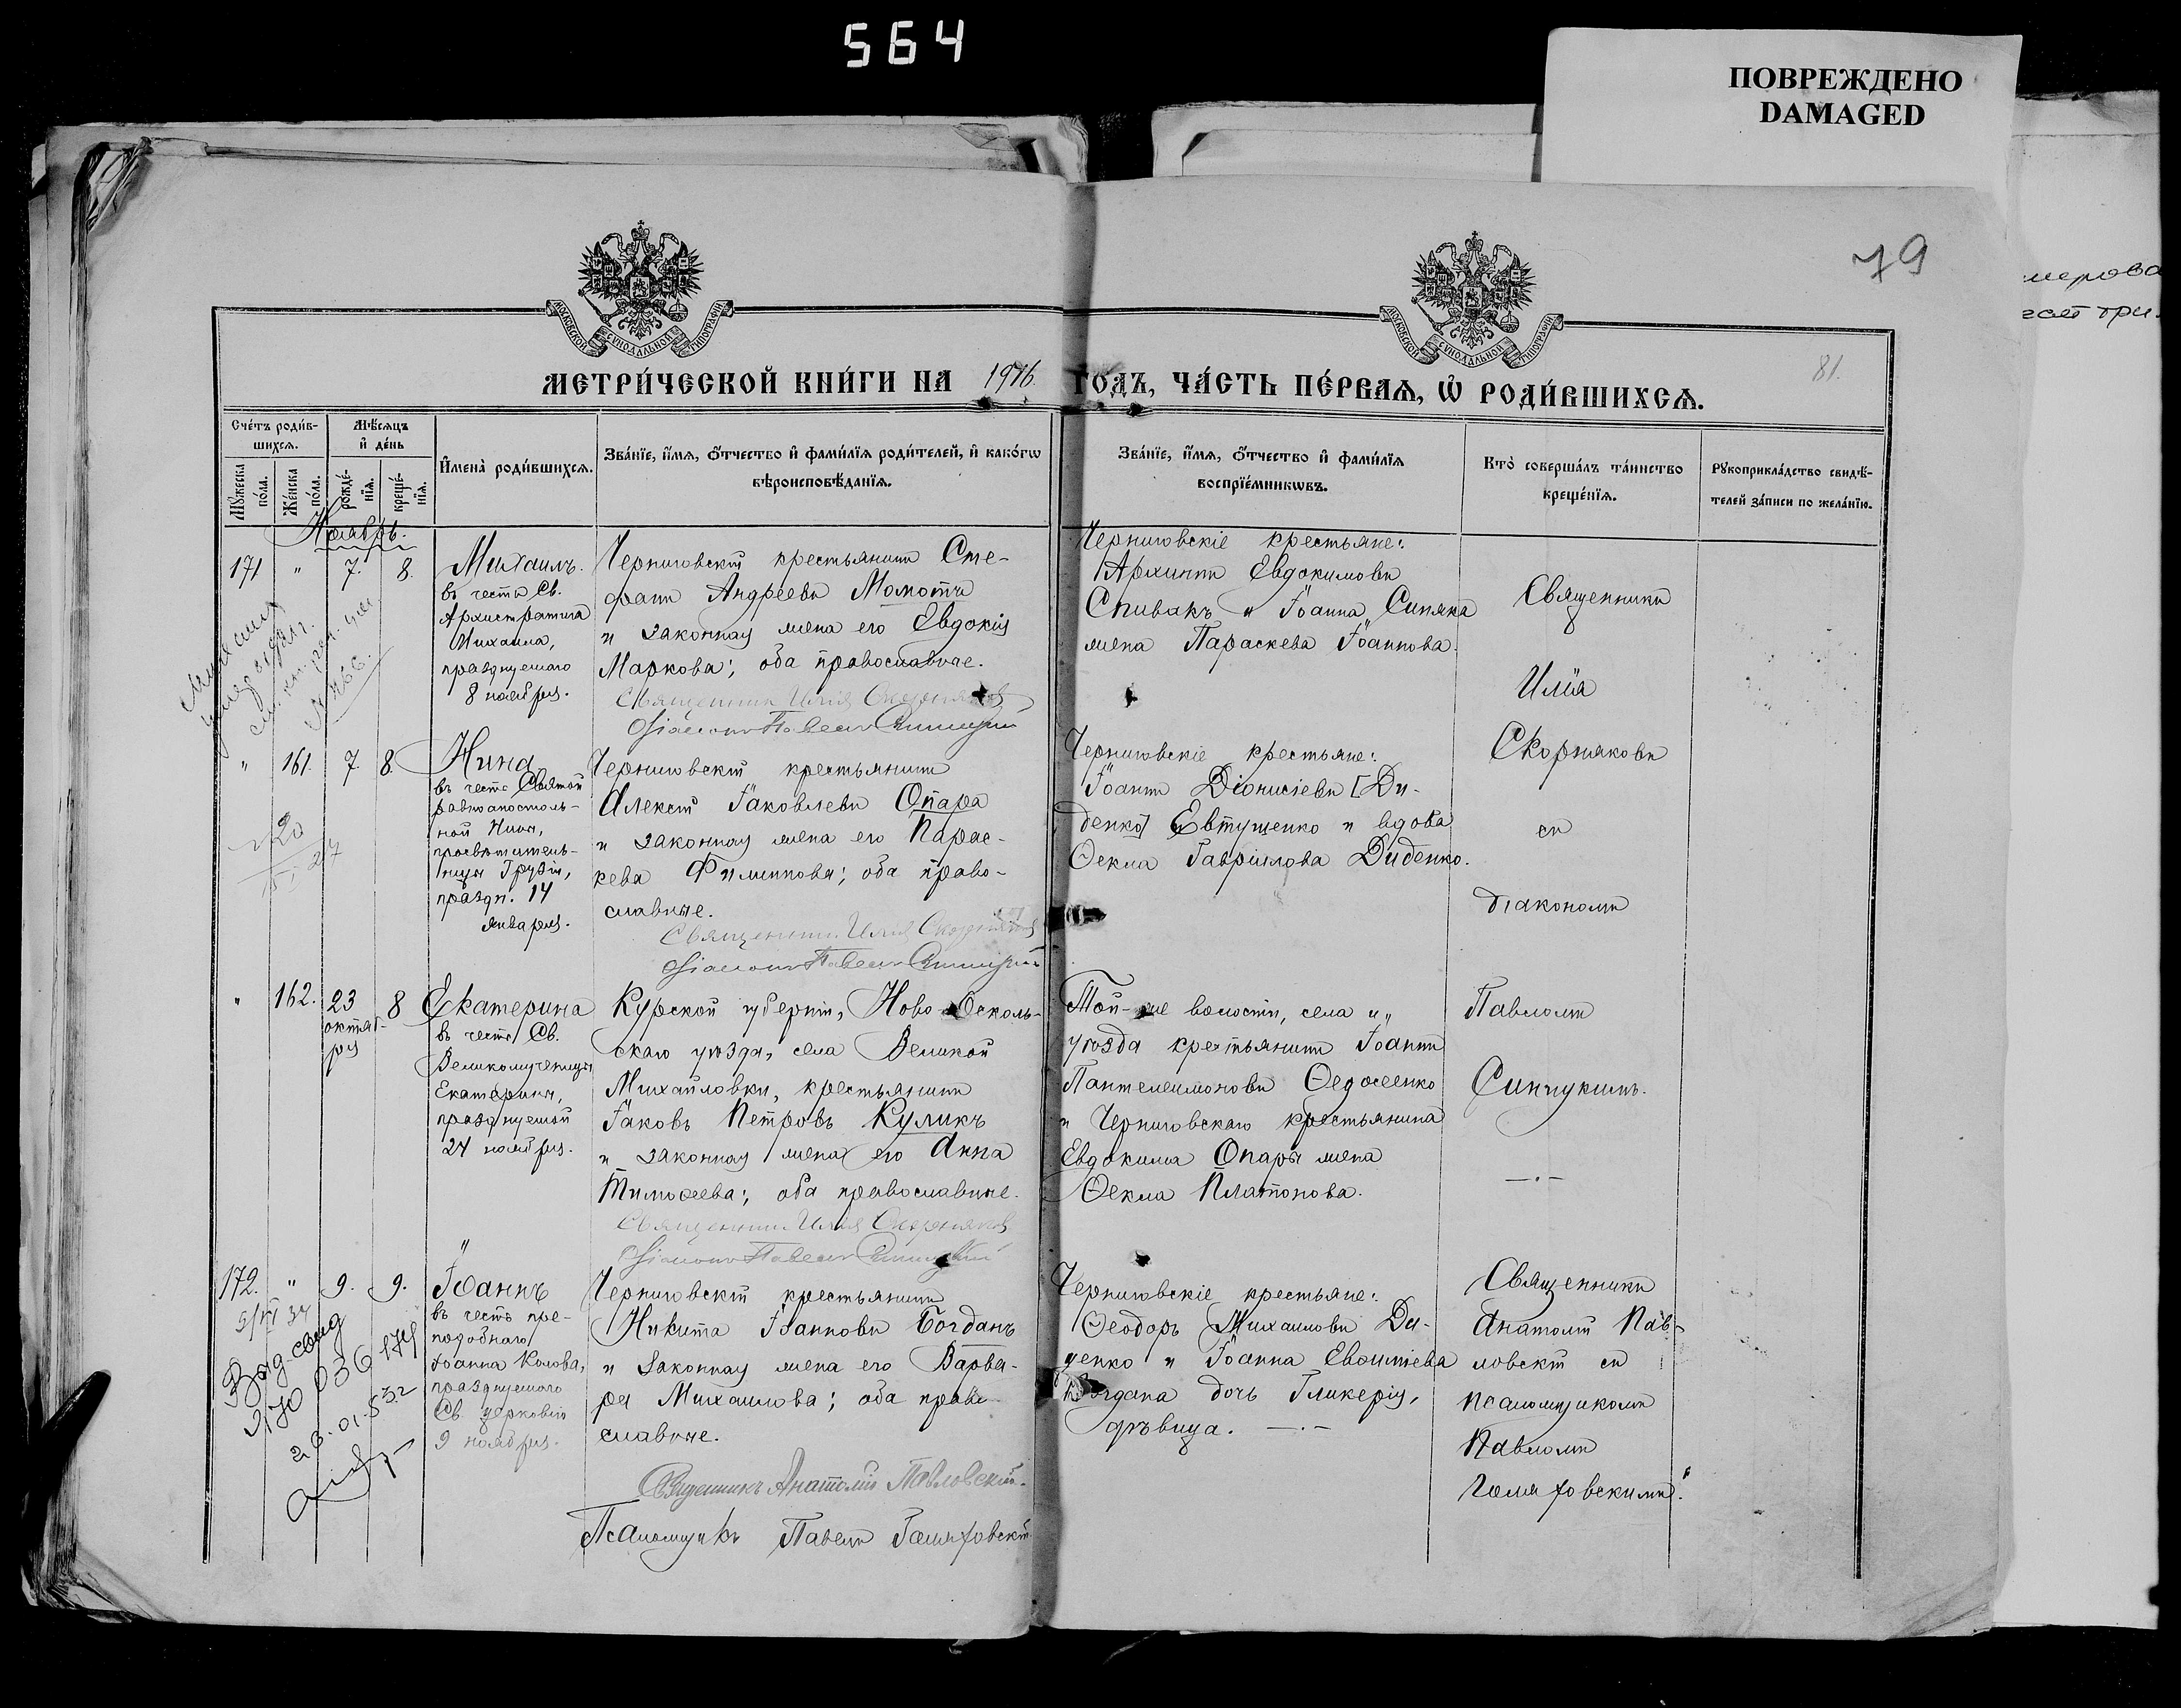 564
ПОВРЕЖДЕНО
DAMAGED
79
81.
МОСКОВСКОЙ СУНОДАЛЬНОЙ ТИПОГРАФІИ
МОСКОВСКОЙ СУНОДАЛЬНОЙ ТИПОГРАФІИ
МЕТРИ́ЧЕСКОЙ КНИ́ГИ НА 1916 ГОДЪ, ЧА́СТЬ ПЕ́РВАѦ, Ѽ РОДИ́ВШИХСѦ.
Сче́тъ роди́в-
шихсѧ.
Мѣ́сѧцъ
и҆ де́нь
Мꙋ́жеска
по́ла.
Же́нска
по́ла.
рожде́-
нїѧ.
креще́-
нїѧ.
И҆мена̀ роди́вшихсѧ.
Зва́нїе, и҆́мѧ, ѻ҆́тчество и҆ фами́лїѧ роди́телей, и҆ како́гѡ
вѣроисповѣ́данїѧ.
Зва́нїе, и҆́мѧ, ѻ҆́тчество и҆ фами́лїѧ
воспрїе́мникѡвъ.
Кто̀ соверша́лъ та́инство
креще́нїѧ.
Рꙋкоприкла́дство свидѣ́-
телей за́писи по жела́нїю.
Ноябрь.
171 " 7. 8.
Михаилъ.
въ честь Св.
Архистратига
Михаила,
празднуемаго
8 ноября.
Черниговскій крестьянинъ Сте-
фанъ Андреевъ Момотъ
и законная жена его Евдокія
Маркова; оба православные.
Священникъ Илія Скорняковъ
Діаконъ Павелъ
Черниговскіе крестьяне:
Архиппъ Евдокимовъ
Спивакъ и Іоанна Синяка
жена Параскева Іоаннова.
Священникъ
Илія
Скорняковъ
съ
діакономъ
Павломъ
" 161. 7. 8.
Нина
въ честь Святой
равноапостоль-
ной Нины,
просвѣтитель-
ницы Грузіи,
праздн. 14
января.
Черниговскій крестьянинъ
Алексій Іаковлевъ Опара
и законная жена его Парас-
кева Филиппова; оба право-
славные.
Священникъ Илія Скорняковъ
Діаконъ Павелъ
Черниговскіе крестьяне:
Іоаннъ Діонисіевъ [Ди-
денко] Евтушенко и вдова
Ѳекла Гавріилова Диденко.
" 162. 23 октяб-
ря 8
Екатерина
въ честь Св.
Великомученицы
Екатерины,
празднуемой
24 ноября.
Курской губерніи, Ново-Осколь-
скаго уѣзда, села Великой
Михайловки, крестьянинъ
Іаковъ Петровъ Куликъ
и законная жена его Анна
Тимоѳеева; оба православные.
Священникъ Илія Скорняковъ
Діаконъ Павелъ
Той-же волости, села и
уѣзда крестьянинъ Іоаннъ
Пантелеимоновъ Ѳедосеенко
и Черниговскаго крестьянина
Евдокима Опары жена
Ѳекла Платонова.
172. " 9. 9.
Іоаннъ
въ честь пре-
подобнаго
Іоанна Колова,
празднуемаго
Св. церковію
9 ноября.
Черниговскій крестьянинъ
Никита Іоанновъ Богданъ
и законная жена его Варва-
ра Михаилова; оба право-
славные.
Священникъ Анатолій Павловскій.
Псаломщикъ Павелъ Голяховскій
Черниговскіе крестьяне:
Ѳеодоръ Михаиловъ Ди-
денко и Іоанна
Богдана дочь Гликерія,
дѣвица.
Священникъ
Анатолій Пав-
ловскій съ
псаломщикомъ
Павломъ
Голяховскимъ.